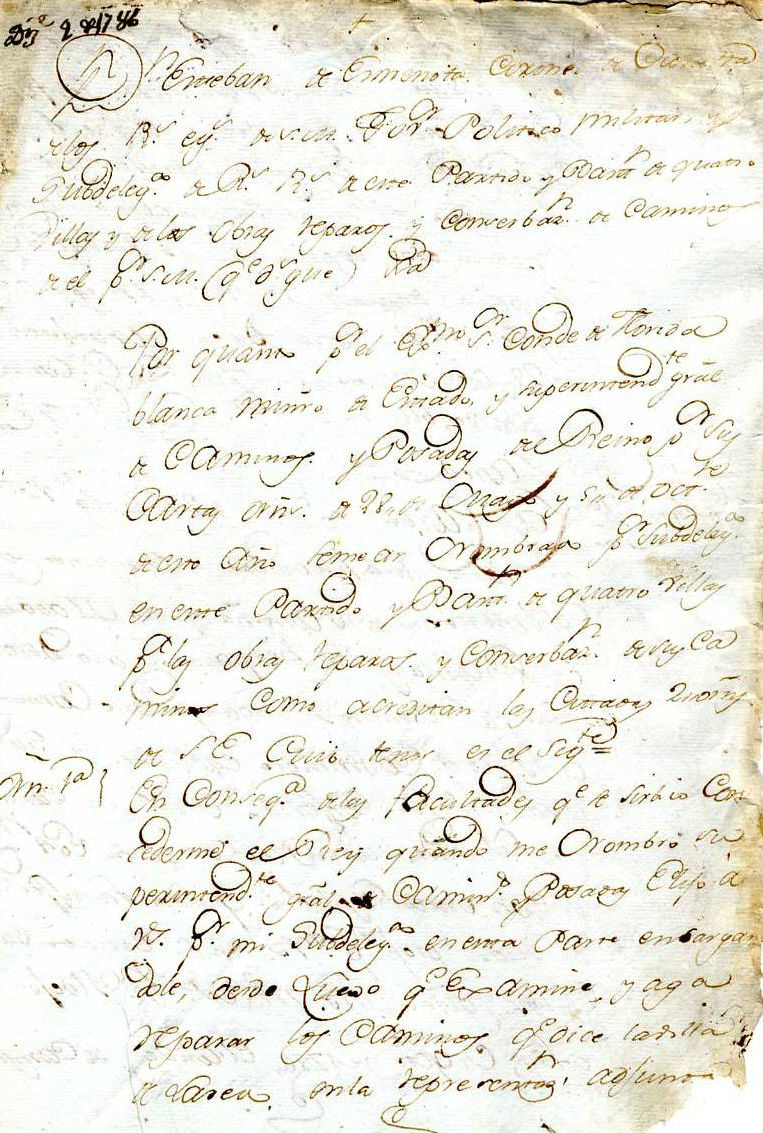 1786
Dn. Esteban de Coronel de
de los Rs. egs. de S.M. Gor. Politico Militar y
Subdelego. de Rs. Rs. de este Partido y Bastn. de quatro
Villas y de las obras reparos y Conserbazn. de Caminos
de el pr. S.M. (qe. Ds. gue)
Por quanto pr. el Exmo. Sr. Conde de Florida
blanca Minro. de Estado, y superintendte. gral
de Caminos y Posadas del Reino pr. sus
Cartas orns. de 28 de Mayo y de Octe.
de este Año se me a Nombrado pr. Subdelego.
en este Partido y Bastn. de quatro Villas
pa. las obras reparos y Conserbazn. de sus Ca
minos como acreditan las Citadas orns.
de S.E. Cuio tenor es el sigte. =
Orn. 1a.
En Conseqa. de las facultades qe. se sirbio Con
cederme el Rey quando me Nombro su
perintendte. gral de Camins. y Posadas Elijo à
V. pr. mi Subdelego. en esta Parte encargan
dole, desde Luego qe. Examine y aga
reparar los Caminos qe. dice la Villa
de Laredo en la representazn. adjunta